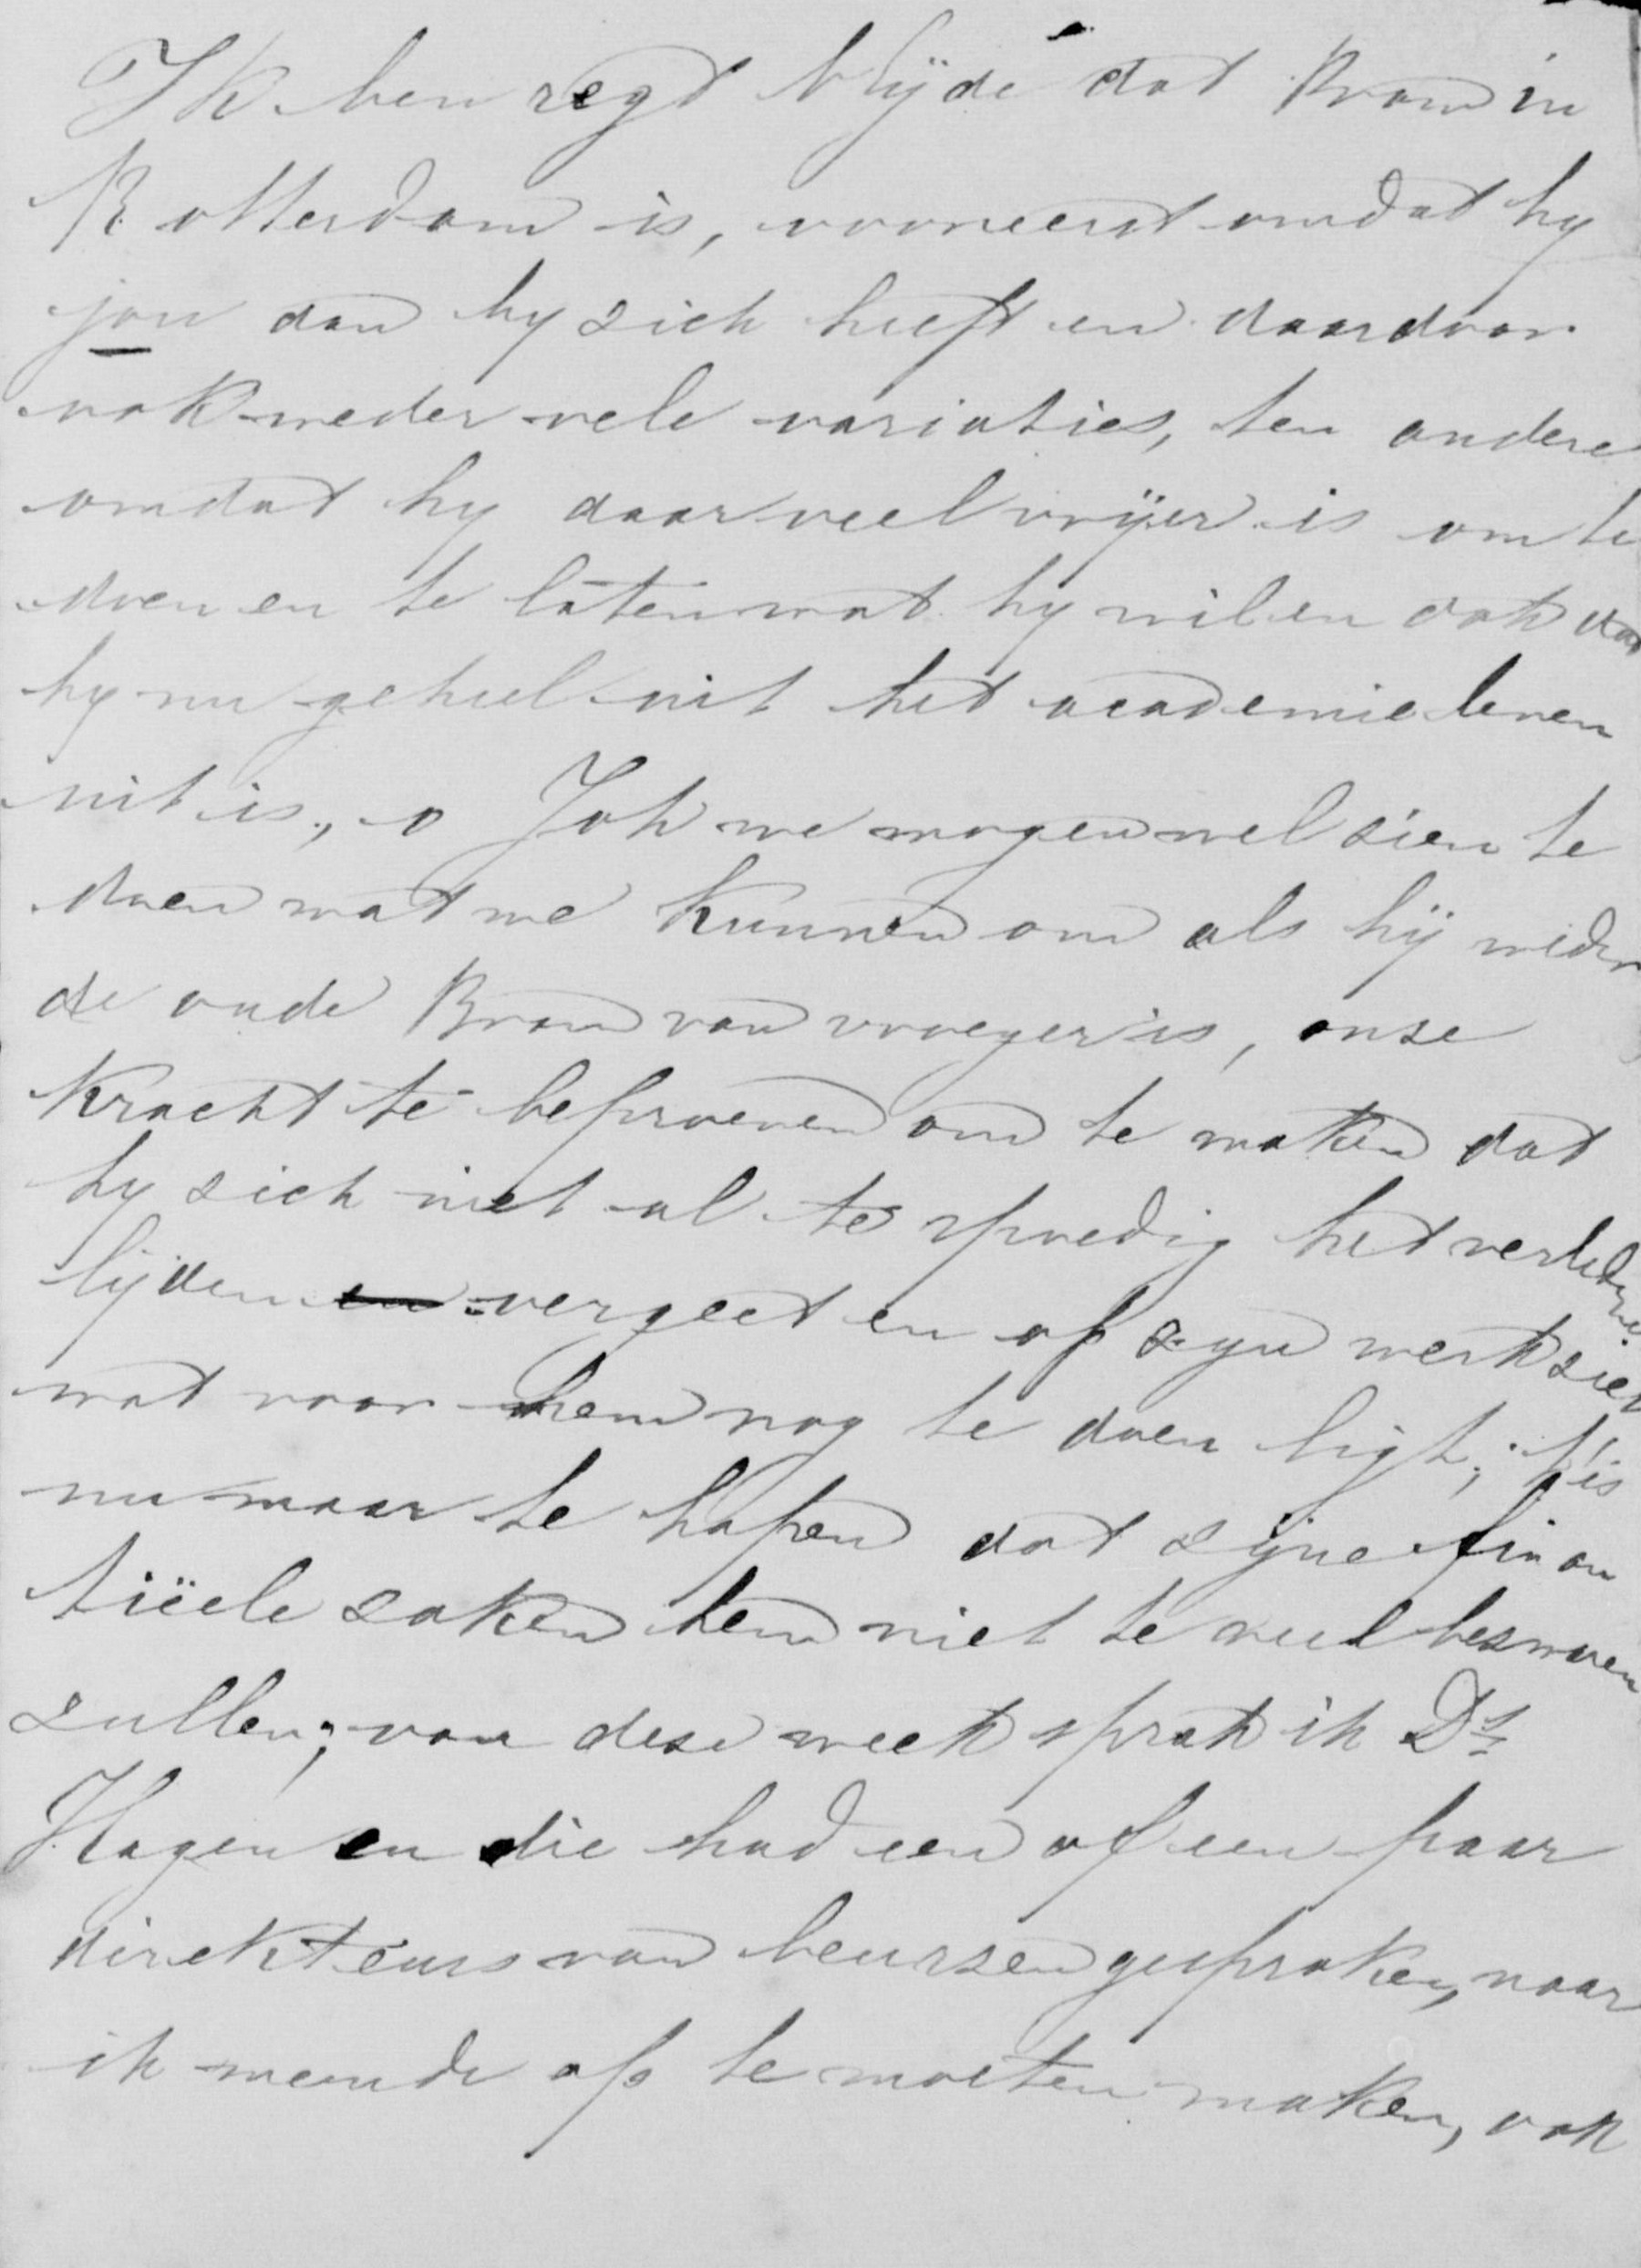 Ik ben regt blijde dat Bram in
Rotterdam is, vooreerst omdat hy
jou dan by zich heeft en daardoor
ook weder vele variaties, ten andere
omdat hy daar veel vrijer is om te
doen en te laten wat hy wil en ook dat
hy nu geheel uit het academieleven
uit is, o Joh we mogen wel zien te
doen wat we kunnen om als hij weder
de oude Bram van vroeger is, onze
kracht te beproeven om te maken dat
hy zich niet al te spoedig het verledene
lijden en vergeet en op zyn werk ziet
wat voor hem nog te doen ligt; t'is
nu maar te hopen dat zijne finan
tiëele zaken hem niet te veel bezwaren
zullen; van deze week sprak ik Ds
Hagen en die had een of een paar
direkteurs van beurzen gesproken, naar
ik meende op te moeten maken, ook